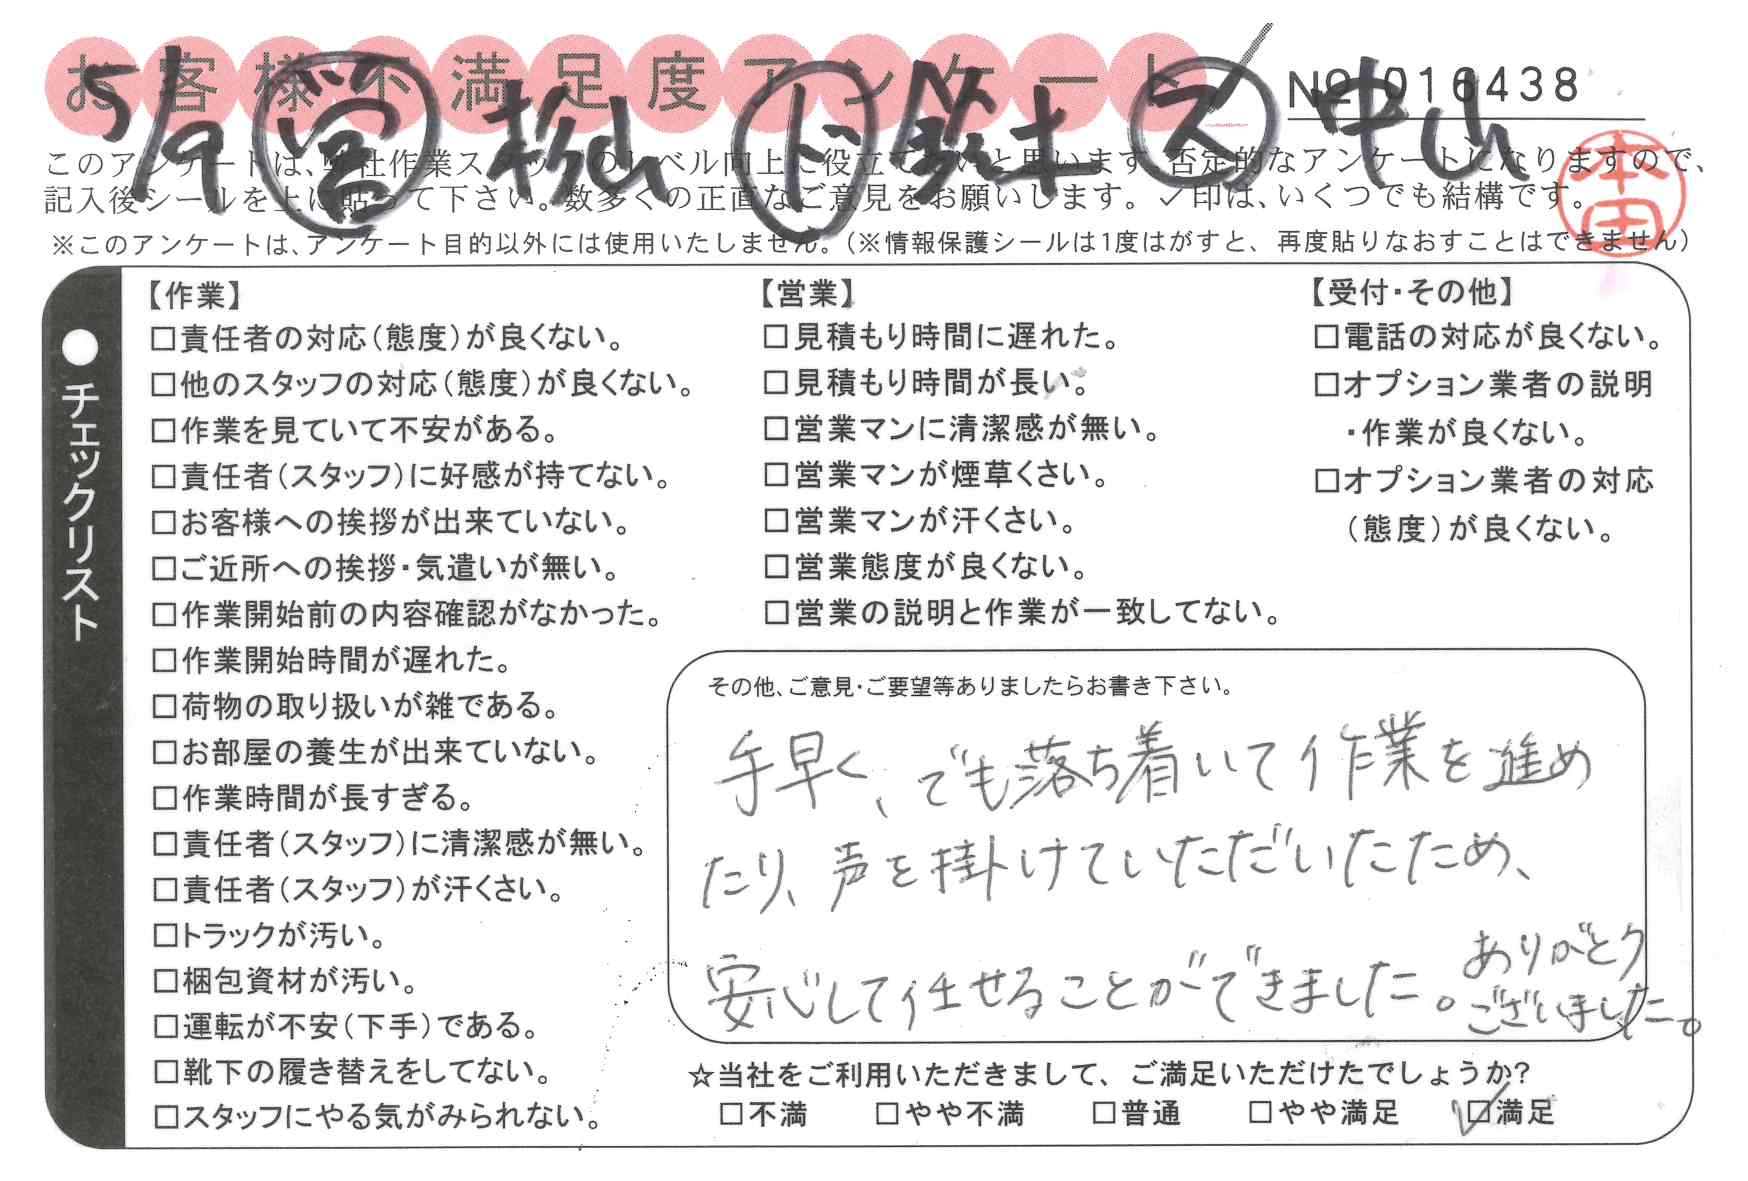 お客様不満足度アンケート
№ 016438
5/9 営 柳山 ド 鈴土 ス 中山
このアンケートは、弊社作業スタッフのレベル向上に役立てたいと思います。否定的なアンケートになりますので、
記入後シールを上に貼って下さい。数多くの正直なご意見をお願いします。✓印は、いくつでも結構です。
本田
※このアンケートは、アンケート目的以外には使用いたしません。(※情報保護シールは1度はがすと、再度貼りなおすことはできません)
●チェックリスト
【作業】
□責任者の対応(態度)が良くない。
□他のスタッフの対応(態度)が良くない。
□作業を見ていて不安がある。
□責任者(スタッフ)に好感が持てない。
□お客様への挨拶が出来ていない。
□ご近所への挨拶・気遣いが無い。
□作業開始前の内容確認がなかった。
□作業開始時間が遅れた。
□荷物の取り扱いが雑である。
□お部屋の養生が出来ていない。
□作業時間が長すぎる。
□責任者(スタッフ)に清潔感が無い。
□責任者(スタッフ)が汗くさい。
□トラックが汚い。
□梱包資材が汚い。
□運転が不安(下手)である。
□靴下の履き替えをしてない。
□スタッフにやる気がみられない。
【営業】
□見積もり時間に遅れた。
□見積もり時間が長い。
□営業マンに清潔感が無い。
□営業マンが煙草くさい。
□営業マンが汗くさい。
□営業態度が良くない。
□営業の説明と作業が一致してない。
【受付・その他】
□電話の対応が良くない。
□オプション業者の説明
・作業が良くない。
□オプション業者の対応
(態度)が良くない。
その他、ご意見・ご要望等ありましたらお書き下さい。
手早く、でも落ち着いて作業を進め
たり、声を掛けていただいたため、
安心して任せることができました。
ありがとう
ございました。
☆当社をご利用いただきまして、ご満足いただけたでしょうか?
□不満 □やや不満 □普通 □やや満足 ☑満足